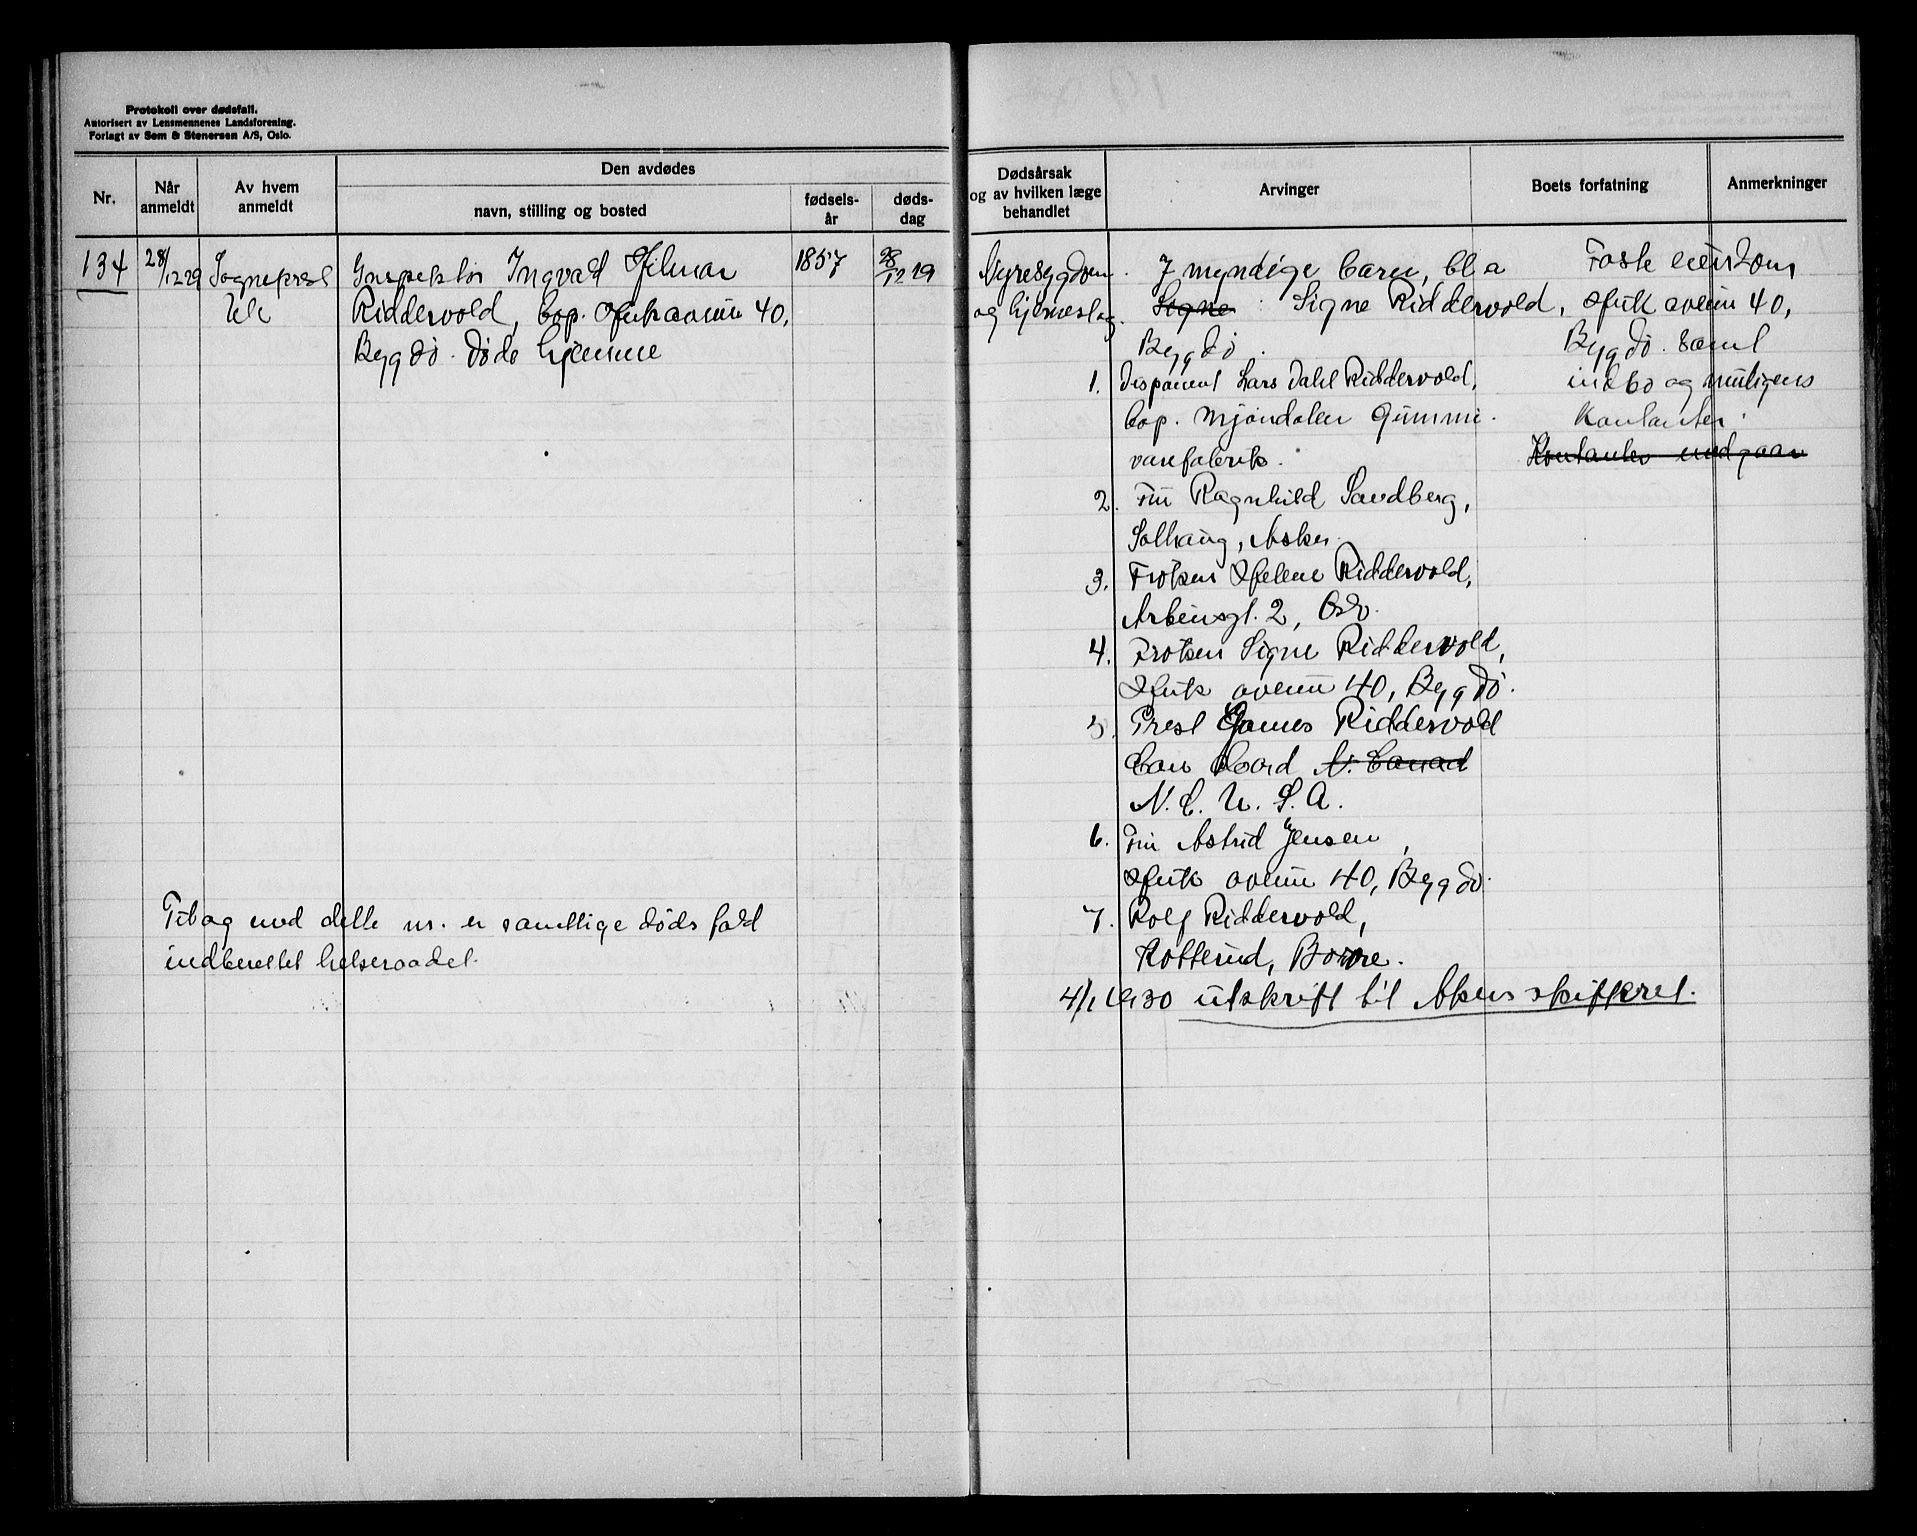 Protokoll over dødsfall.
Autorisert av Lensmennenes Landsforening.
Forlagt av Sem & Stenersen A/S, Oslo.
Nr.
Når anmeldt
Av hvem anmeldt
Den avdødes
navn, stilling og bosted
fødselsår
dødsdag
Dødsårsak og av hvilken læge behandlet
Arvinger
Boets forfatning
Anmerkninger
134
28/12 29
Sogneprest
Inspektør Ingvald Hilmar
Riddervold, bop. Huk avenue 40,
Bygdø. Døde hjemme
1857
28/12 29
Nyresygdom
og hjerneslag.
7 myndige barn, bl a
Signe : Signe Riddervold,
Bygdø.
1. Disponent Lars Dahl Riddervold,
bop. Mjøndalen Gummi-
varefabrik.
2. Fru Ragnhild Sandberg,
Solhaug, Asker.
3. Frøken Helene Riddervold,
Arbiensgt. 2, Oslo.
4. Frøken Signe Riddervold,
Huk avenue 40, Bygdø.
5. Prest James Riddervold
N. C. U. S. A.
6. Fru Astrid Jensen,
Huk avenue 40, Bygdø.
7. Rolf Riddervold,
Borre.
4/1 1930 utskrift til Akers skifteret.
Faste eiendom
Huk avenue 40,
Bygdø. samt
indbo og muligens
kontanter.
Kontanter medgaar
Til og med dette nr. er samtlige dødsfald
indberettet helseraadet.